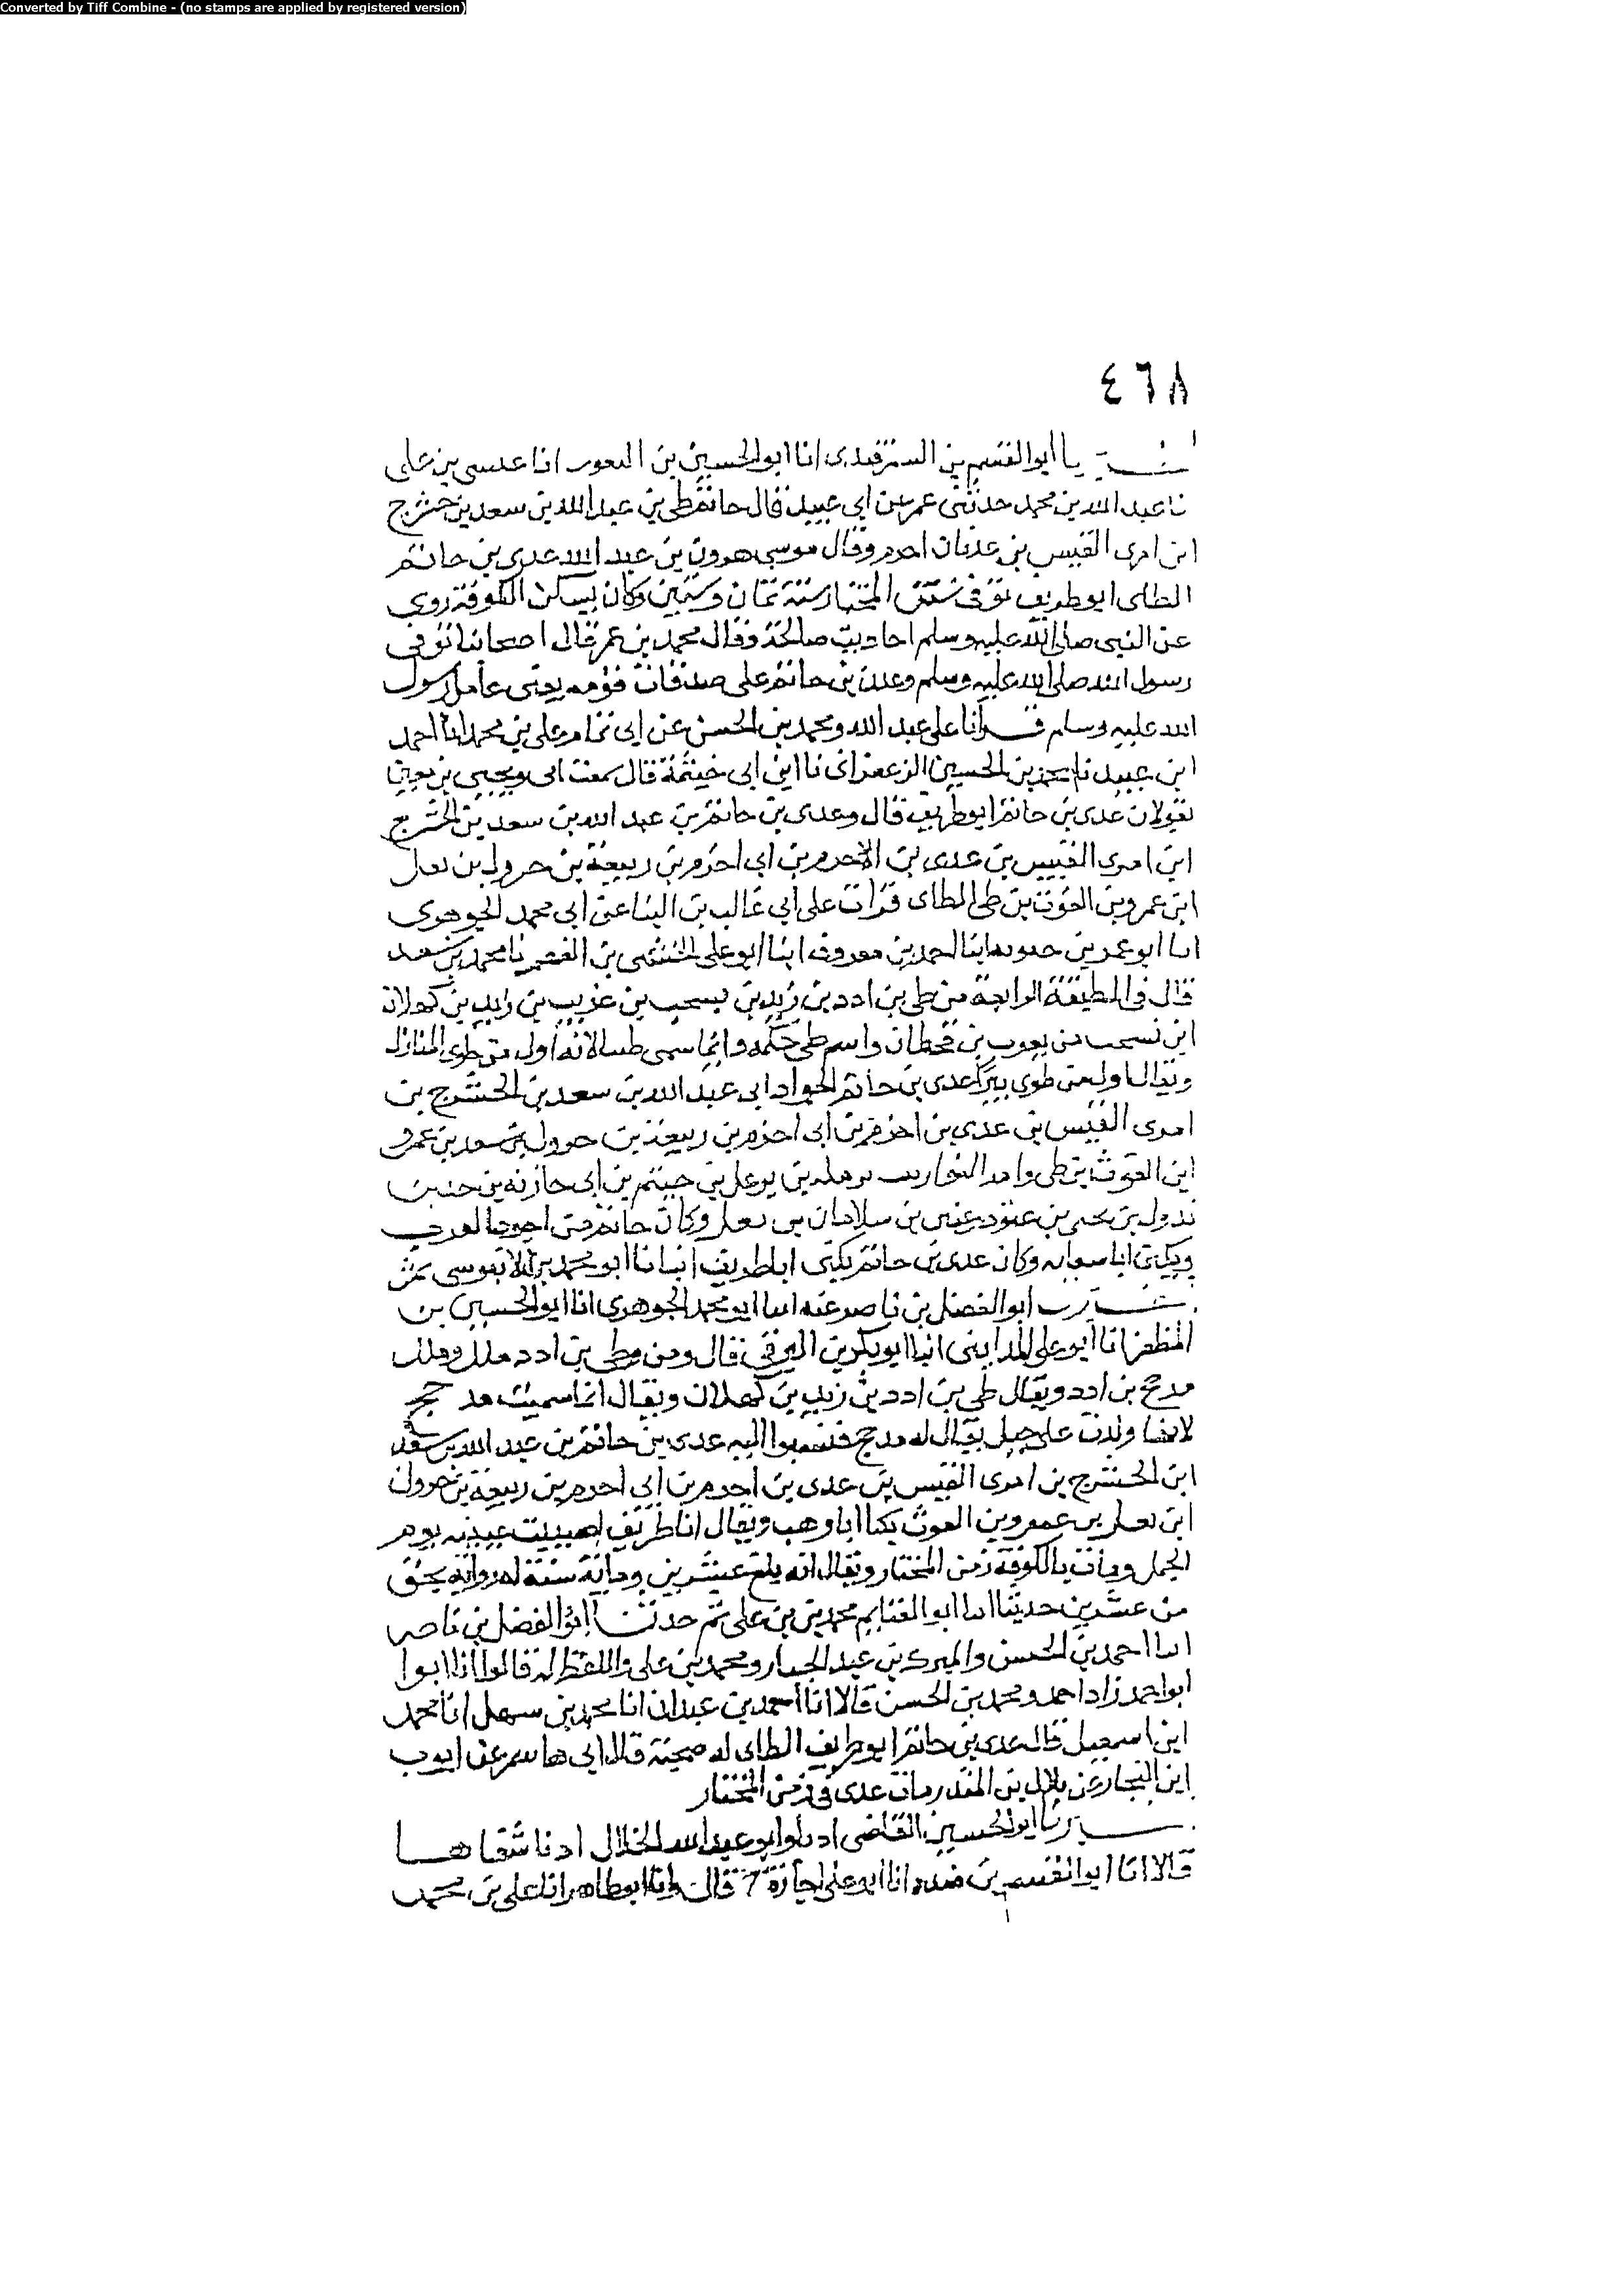 Converted by Tiff Combine - (no stamps are applied by registered version)
٤٦٨
ابو القسم بن السمرقندى انا ابو الحسين بن النعور انا عيسى بن على
نا عبد الله بن محمد حدثنى عمر عن ابي عبيد قال حاتم طي بن عبد الله بن سعد بن حشرج
ابن امرى القيس بن عدنان احرم وقال موسى هرون بن عبد الله عدى بن حاتم
الطاى ابو طريف توفى سنة المختار سنة ثمان وستين وكان يسكن الكوفة روى
عن النبى صلى الله عليه وسلم احاديث صالحة وقال محمد بن عمر قال اصحابنا توفى
رسول الله صلى الله عليه وسلم وعدى بن حاتم على صدقات قومه يعنى عامل رسول
الله عليه وسلم قرانا على عبد الله ومحمد بن الحسن عن ابى تمام على بن محمد انا احمد
ابن عبيد نا محمد بن الحسين الزعفرانى نا ابن ابى خيثمة قال سمعت ابى ويحيى بن معين
يقولان عدى بن حاتم ابو طريف قال وعدى بن حاتم بن عبد الله بن سعد بن الحشرج
ابن امرى القيس بن عدى بن الاخرم بن ابى اخزم بن ربيعة بن حرول بن نعل
ابن عمرو بن الغوث بن طى الطاى قرات على ابى غالب بن البنا عن ابى محمد الجوهرى
انا ابو عمر بن حيويه ابنا احمد بن معروف ابنا ابو على بن الفهم نا محمد بن سعد
قال فى الطبقة الرابعة من طى بن ادد بن زيد بن يسحب بن عريب بن زيد بن كهلان
ابن يسحب بن يعرب بن قحطان واسم طى جلهمه وانما سمى طيا لانه اول من طوى المنازل
ويقال اول من طوى بيرا عدى بن حاتم الجواد ابى عبد الله بن سعد بن الحشرج بن
امرى القيس بن عدى بن اخزم بن ابى اخزم بن ربيعة بن حرول بن سعد بن عمرو
ابن الغوث بن طى وامه النوار بن ابى حازنه بن
تدول بن بن عتود بن عنين بن سلامان بن نعل وكان حاتم من اجود العرب
ويكنى ابا سفانه وكان عدى بن حاتم يكنى ابا طريف انبانا ابو محمد بن الابنوسى ثم
ابو الفضل بن ناصر عنه انا ابو محمد الجوهرى انا ابو الحسين بن
المظفر انا ابو على المداينى انبا ابو بكر بن البرقى قال ومن طى بن ادد
مدحج بن ادد ويقال طى بن ادد بن زيد بن كهلان ويقال انما سميت مدحج
لانها ولدت على جبل يقال له مدحج فنسبوا اليه عدى بن حاتم بن عبد الله بن سعد
ابن الحشرج بن امرى القيس بن عدى بن احزم بن ابى احزم بن ربيعة بن حرول
ابن نعل بن عمرو بن الغوث يكنا ابا وهب ويقال ابا طريف اصيبت عينه يوم
الجمل ومات بالكوفة زمن المختار ويقال انه بلغ عشرين ومائة سنة له رواية بحق
من عشرين حديثا انا ابو الغنايم محمد بن على ثم حدثنا ابو الفضل بن ناصر
انا احمد بن الحسن والمبرك بن عبد الجبار ومحمد بن على واللفظ له قالوا انا ابوا
ابو احمد زاد احمد ومحمد بن الحسن قالا انا احمد بن عبدان انا محمد بن سهل انا محمد
ابن اسمعيل قال عدى بن حاتم ابو طريف الطاى له صحبة قال ابى هاسم عن ايوب
ابن النجار عن بلال بن المنذر مات عدى فى زمن المختار
ابو الحسين القاضى اذنا وابو عبد الله الخلال اذنا شفاها
قالا انا ابو القسم بن منده انا ابو على اجازة ح قال وانا ابو طاهر انا على بن محمد